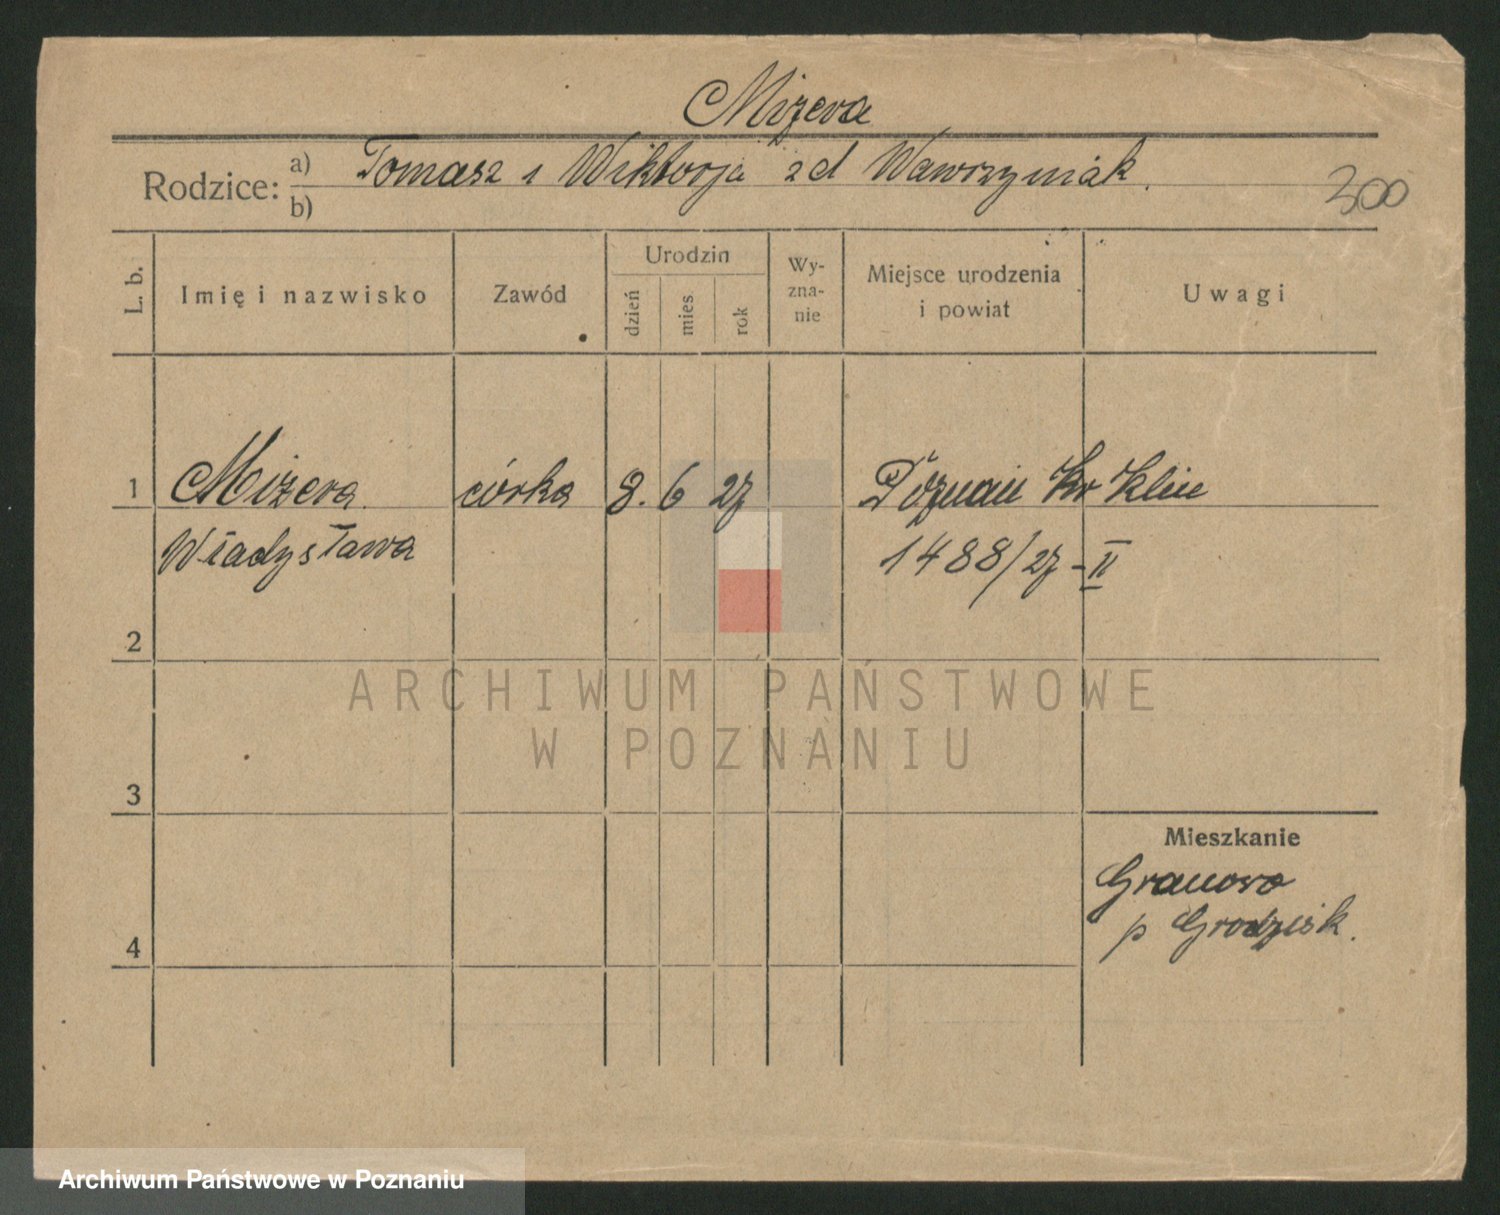 Miżera
Rodzice: a) Tomasz i Wiktorja zd Wawrzyniak.
b)
300
L. b.
Imię i nazwisko
Zawód
Urodzin
dzień
mies
rok
Wy-
zna-
nie
Miejsce urodzenia
i powiat
Uwagi
1 Miżera córka 8. 6 27 Poznań Kr Klin
Władysława 1488/27-II
2
ARCHIWUM PAŃSTWOWE
W POZNANIU
3
Mieszkanie
Granowo
p Grodzisk.
4
Archiwum Państwowe w Poznaniu